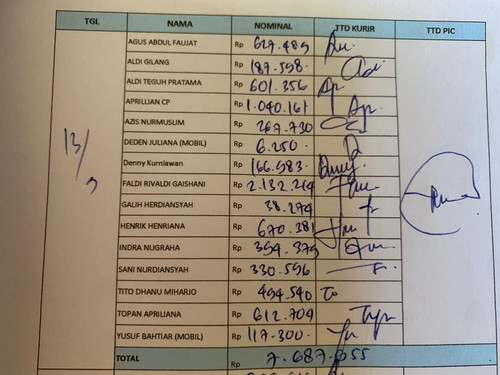 TGL NAMA NOMINAL TTD KURIR TTD PIC
13/9
AGUS ABDUL FAUJAT Rp 627.489
ALDI GILANG Rp 187.598.
ALDI TEGUH PRATAMA Rp 601.356
APRILLIAN CP Rp 1.040.161
AZIS NURMUSLIM Rp 267.730
DEDEN JULIANA (MOBIL) Rp 6.250.
Denny Kurniawan Rp 166.983.
FALDI RIVALDI GAISHANI Rp 2.132.214
GALIH HERDIANSYAH Rp 38.274
HENRIK HENRIANA Rp 670.381
INDRA NUGRAHA Rp 394.379
SANI NURDIANSYAH Rp 330.596
TITO DHANU MIHARJO Rp 494.540 To
TOPAN APRILIANA Rp 612.704
YUSUF BAHTIAR (MOBIL) Rp 117.300.
TOTAL Rp 7.687.955